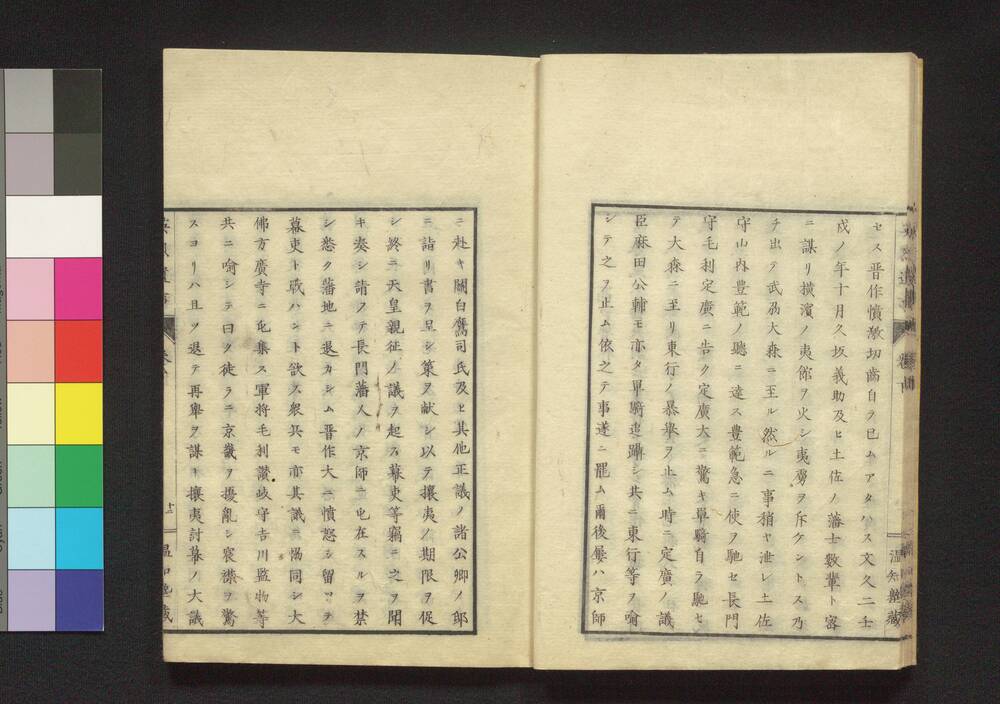 セス晋作憤激切齒自ラ已ムアタハス文久二壬
戌ノ年十月久坂義助及ヒ土佐ノ藩士數輩ト密
ニ謀リ横濱ノ夷館ヲ火シ夷虜ヲ斥ケントス乃
チ出テ武刕大森ニ至ル然ルニ事稍ヤ泄レ土佐
守山内豊範ノ聽ニ達ス豊範急ニ使ヲ馳セ長門
守毛利定廣ニ告ク定廣大ニ驚キ單騎自ラ馳セ
テ大森ニ至リ東行ノ暴舉ヲ止ム時ニ定廣ノ議
臣麻田公輔モ亦タ單騎追躡シ共ニ東行等ヲ喻
シテ之ヲ止ム依之テ事遂ニ罷ム爾後屢ハ京師
温知樂藏
ニ赴キ關白鷹司氏及ヒ其他正議ノ諸公卿ノ邸
ニ詣リ書ヲ呈シ策ヲ献シ以テ攘夷ノ期限ヲ促
シ終ニ天皇親征ノ議ヲ起ス幕吏等竊ニ之ヲ聞
キ奏シ請フテ長門藩人ノ京師ニ屯在スルヲ禁
シ悉ク藩地ニ退カシム晋作大ニ憤怒シ留マヲ
幕吏ト戰ハント欲ス衆兵モ亦其議ニ愓同シ大
佛方廣寺ニ屯集ス軍将毛利讃岐守吉川監物等
共ニ喻シテ曰ク徒ラニ京畿ヲ擾亂シ宸襟ヲ驚
スヨリハ且ツ退テ再舉ヲ謀キ攘夷討幕ノ大議